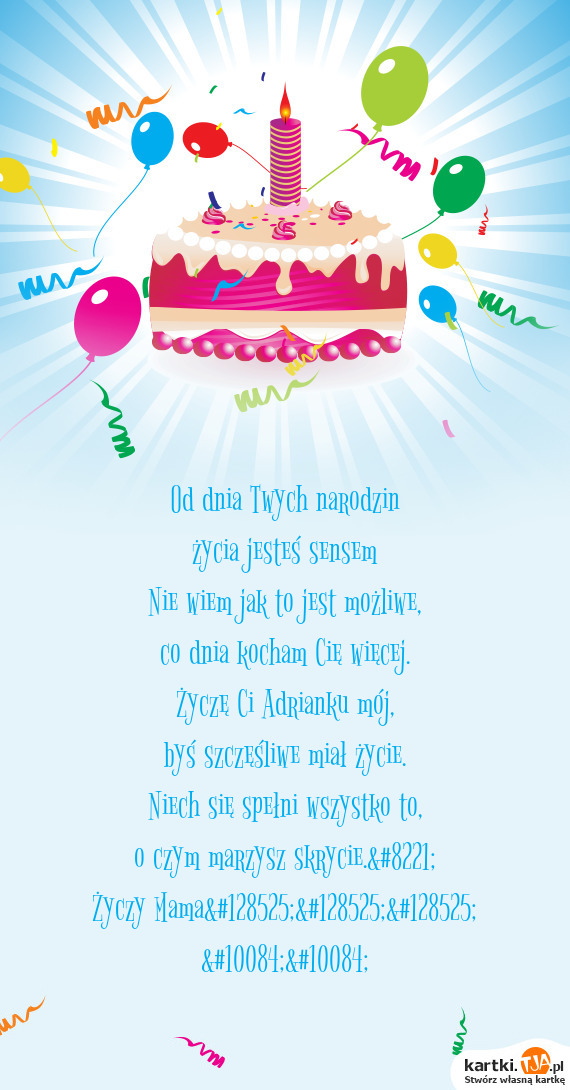 Od dnia Twych narodzin
życia jesteś sensem
Nie wiem jak to jest możliwe,
co dnia kocham Cię więcej.
Życzę Ci Adrianku mój,
byś szczęśliwe miał życie.
Niech się spełni wszystko to,
o czym marzysz skrycie.&#8221;
Życzy Mama&#128525;&#128525;&#128525;
&#10084;&#10084;
kartki.TJA.pl
Stwórz własną kartkę